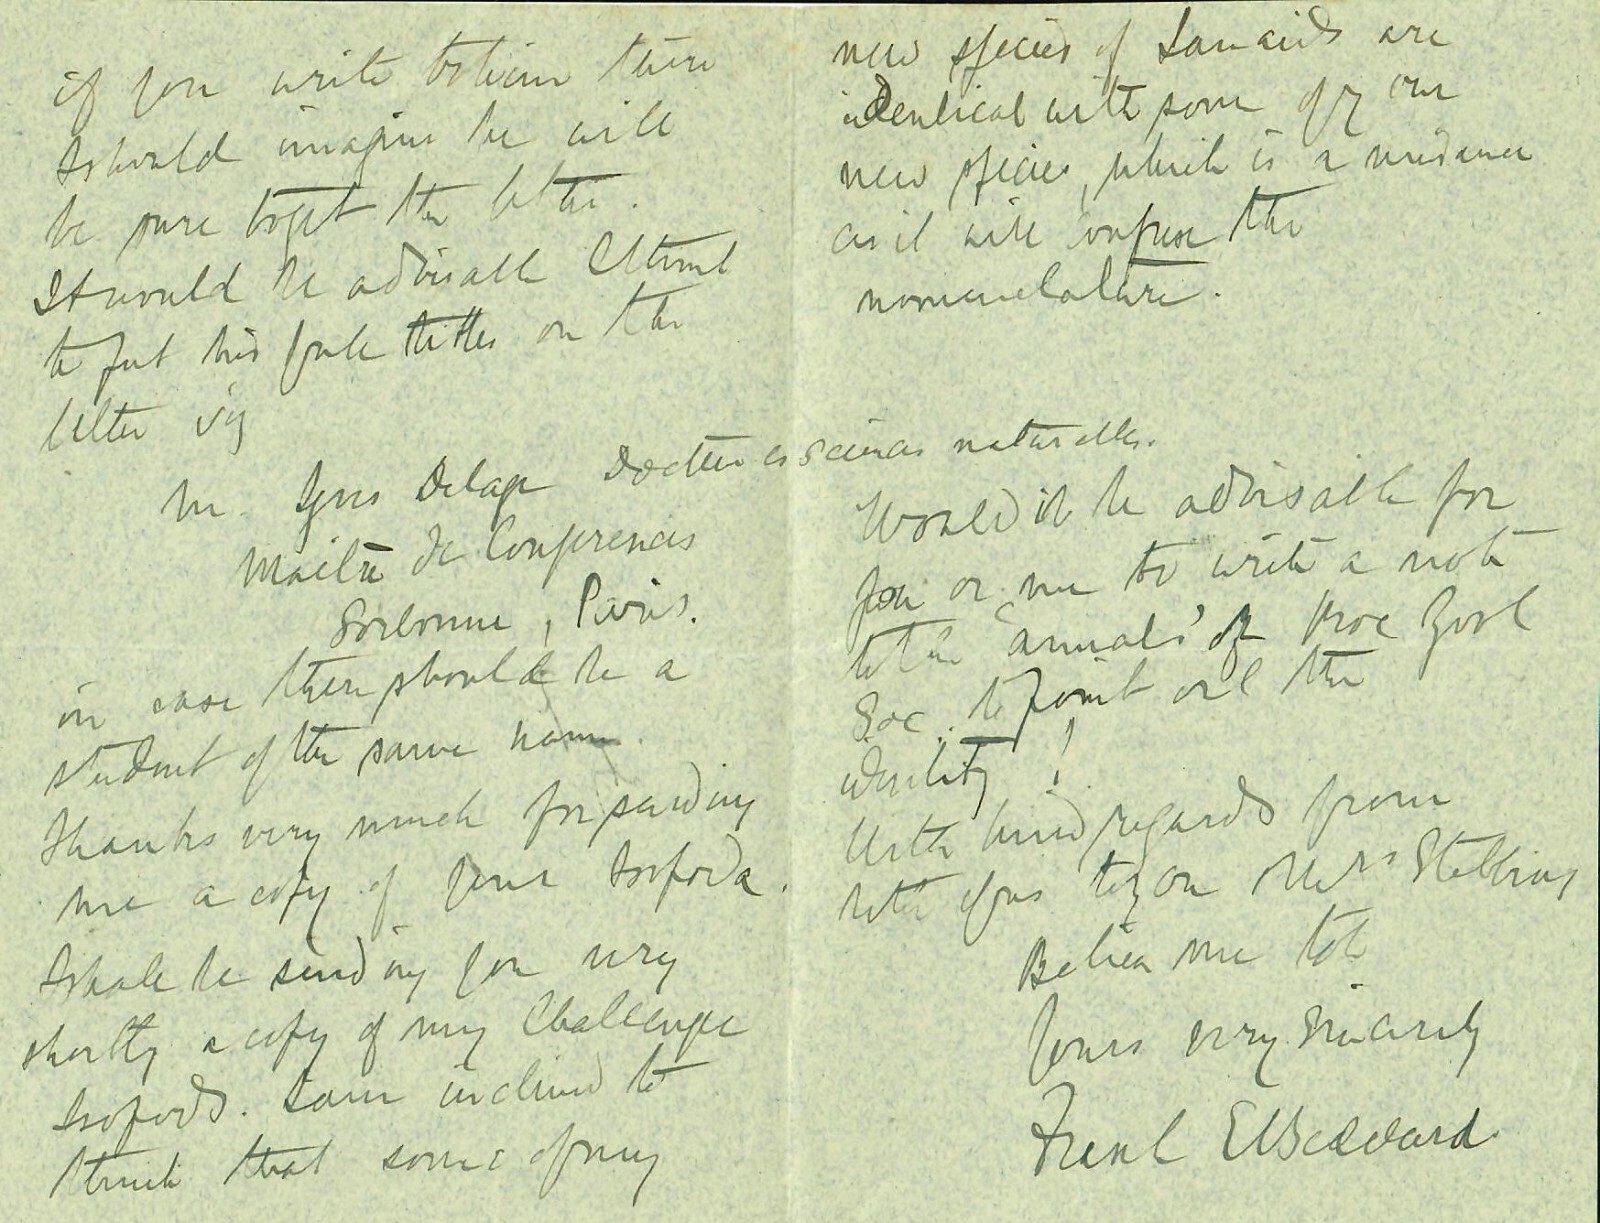 if you write to him there
I should imagine he will
be sure to get the letter.
It would be advisable I think
to put his full titles on the
letter viz
M. Yves Delage Docteur es Sciences naturelles.
Maitre de Conferences
Sorbonne, Paris.
in case there should be a
student of the same name.
Thanks very much for sending
me a copy of your Isopoda.
I shall be sending you very
shortly a copy of my Challenger
Isopods. I am inclined to
think that some of my
new species of are
identical with some of your
new species, which is a nuisance
as it will confuse the
nomenclature.
Would it be advisable for
you or me to write a note
to the 'annals' or Proc Zool
Soc. to point out the
identity!
With kind regards from
both of us to you & Mrs Stebbing
Believe me to be
Yours very sincerely
Frank E Beddard.